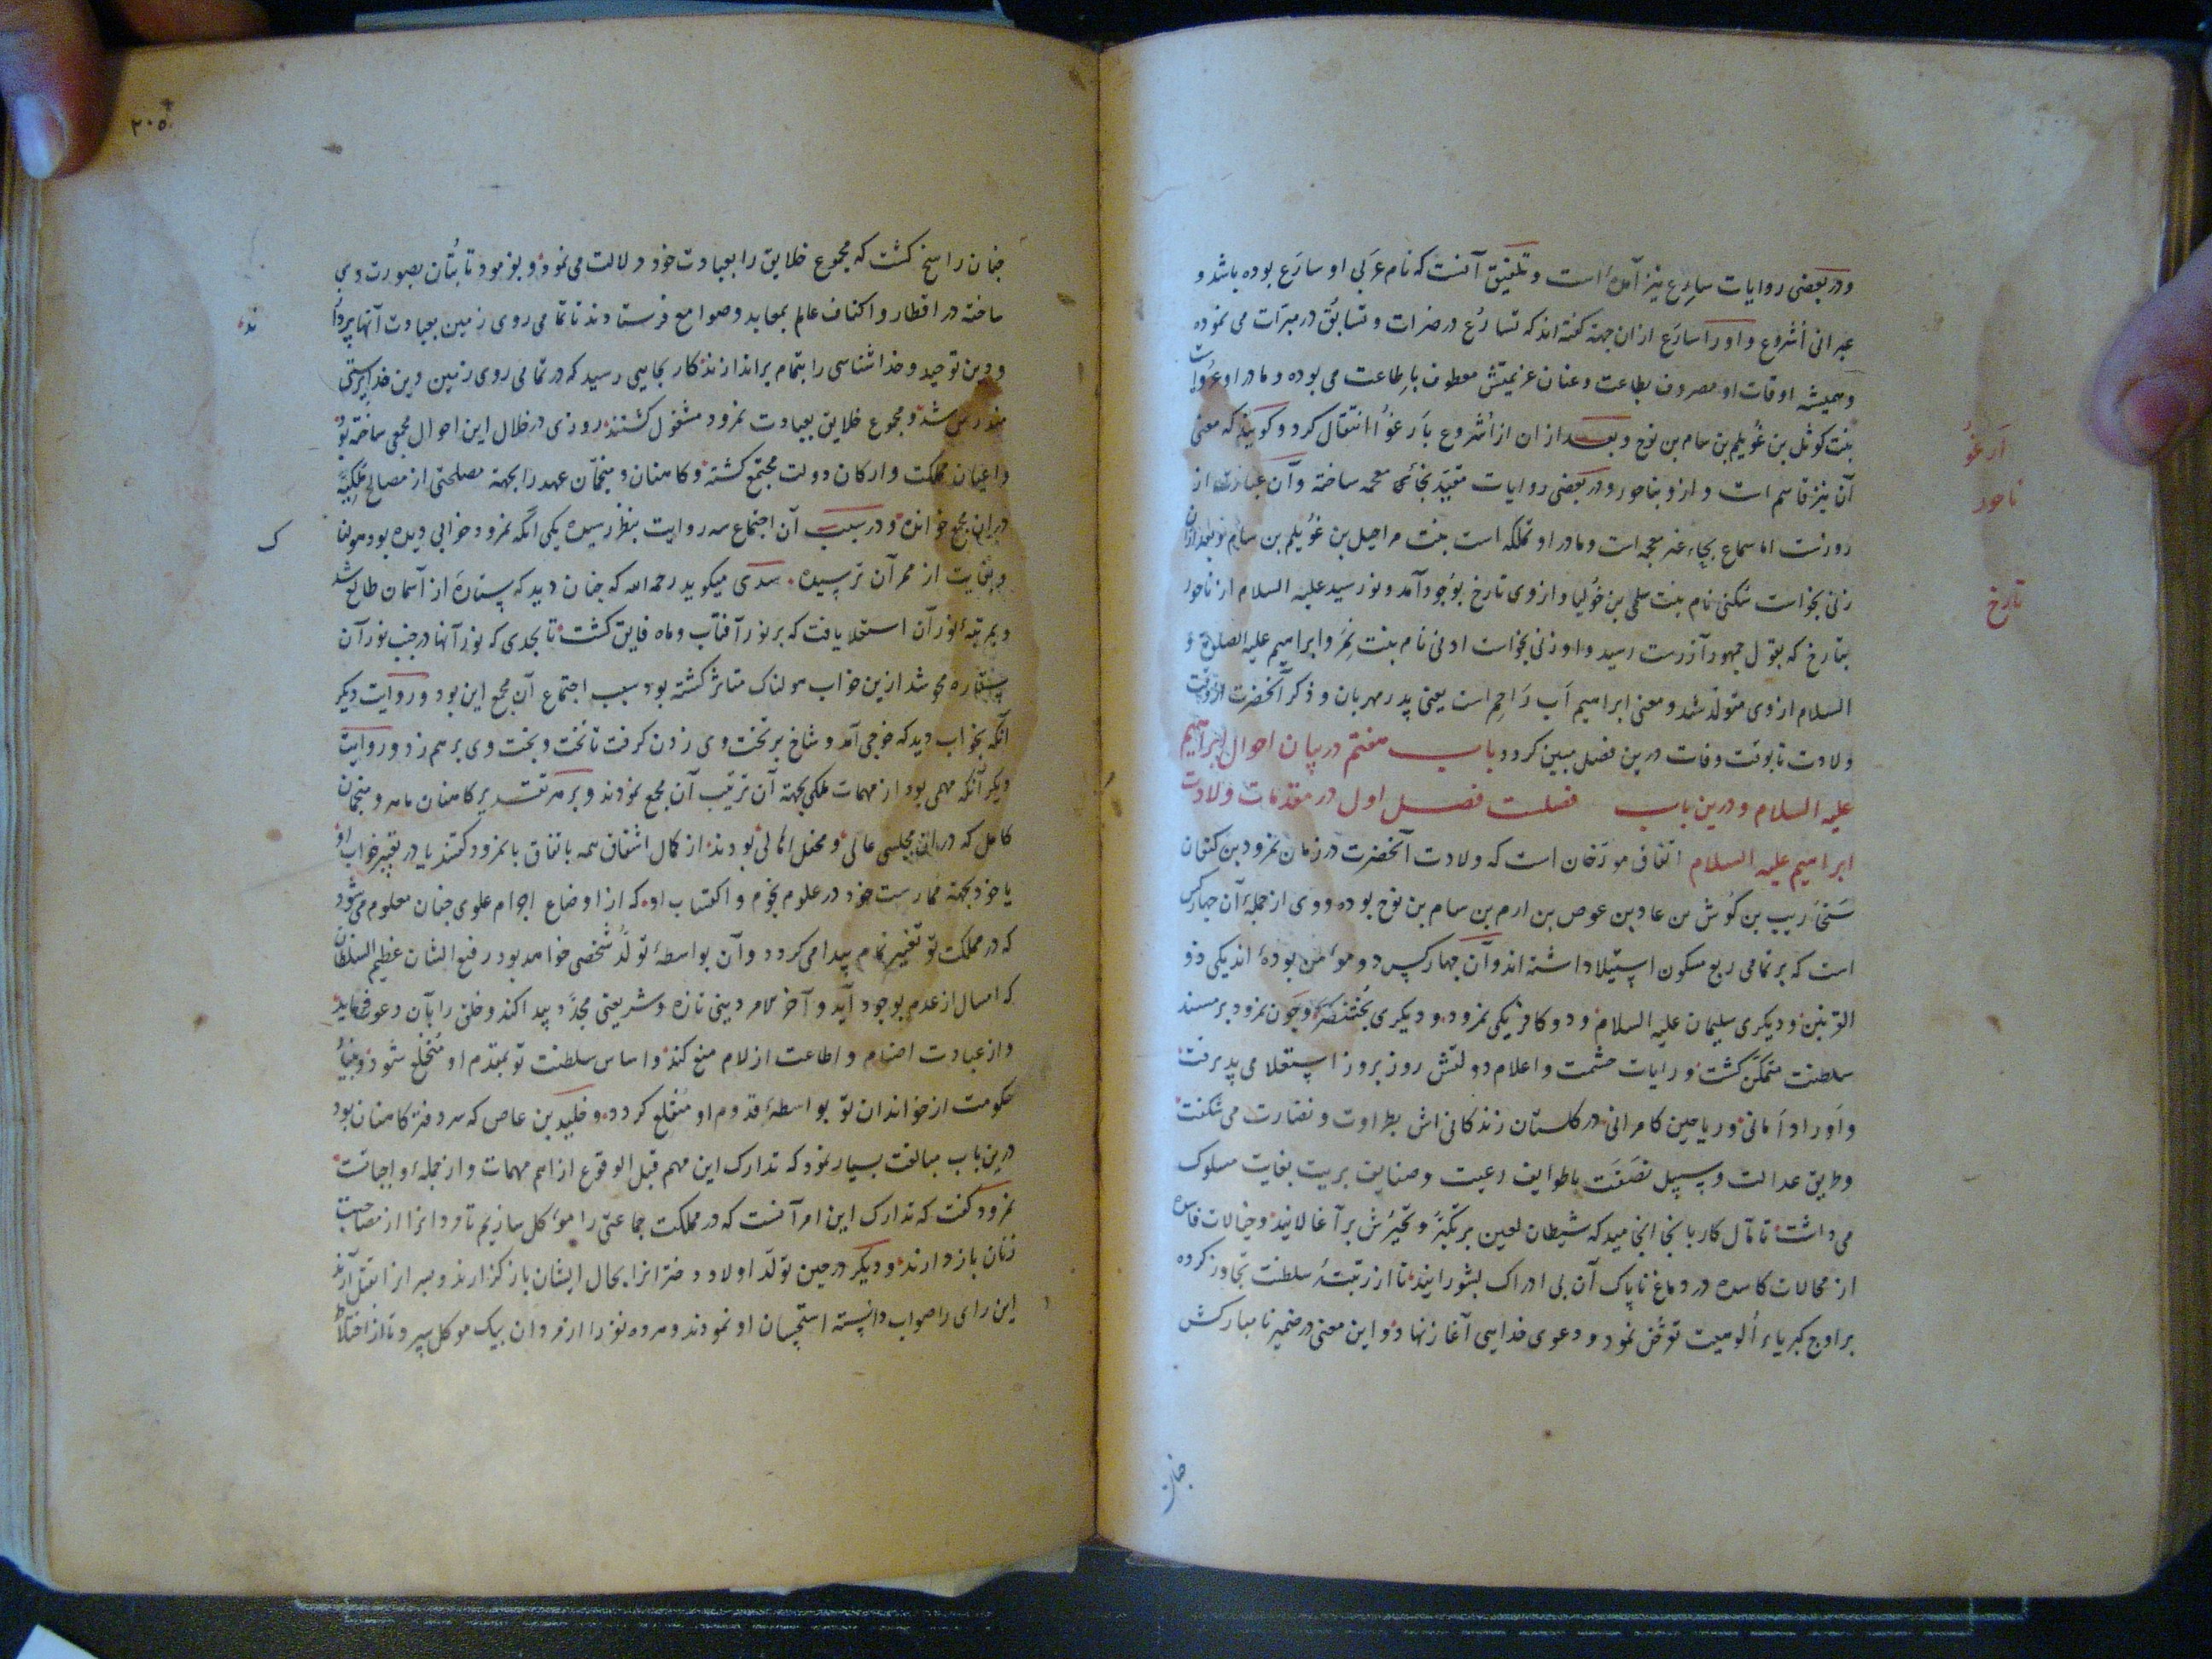 ودر بعضی روایات سارع نیز آمده است و تلفیق آنست که نام عربی او سارَع بوده باشد و
عبرانی اُشروع و او را سارَع ازان جهته گفته‌اند که تسارُع در خیرات و تسابُق در مبرّات می نموده
و همیشه اوقات او مصروف بطاعت و عنان عزیمتش معطوف باطاعت می بوده و مادر او عُرواست
بنت کوثل بن غُویلم بن سام بن نوح و بعد ازان از اُشروع بأرغُو انتقال کرد و کویند که معنی
اَرغُو
آن نیز قاسم است و ازو بناحور و در بعضی روایات مقید بخائ معجمه ساخته و آن عبارت از
ناحور
روزنت اما سماع بحاء غیر معجمه است و مادر او تملکه است بنت مراحیل بن غُویلم بن سام نوح بعد ازان
زنی بخواست سکنی نام بنت سلمی بن حُولیا و ازوی تارخ بوُجود آمد و نور سید علیه السلام از ناحور
تارخ
بتارخ که بقول جمهور آزرست رسید و او زنی بخواست ادنی نام بنت نمر و ابراهیم علیه الصلوة و
السلام ازوی متولد شد و معنی ابراهیم اَب رَاحِم است یعنی پدر مهربان و ذکر آنحضرت از وقت
ولادت تا بوقت وفات درین فصل مبین کردد باب هفتم در بیان احوال ابراهیم
علیه السلام و درین باب فصلست فصل اول در مقدمات ولادت
ابراهیم علیه السلام اتفاق مورّخان است که ولادت آنحضرت در زمان نمرود بن کنعان
بن کُوش بن عاد بن عوص بن ارم بن سام بن نوح بوده و وی از جملهٔ آن چهارکس
است که بر تمامی ربع مسکون استیلا داشته اند و آن چهارکس دو مؤمن بودهٔ اند یکی ذو
القرنین و دیکری سلیمان علیه السلام و دو کافر یکی نمرود و دیکری بُختنصّر و چون نمرود بر مسند
سلطنت متمکن کشت و رایات حشمت و اعلام دولتش روز بروز استعلا می پذیرفت
و اَوراد اَمانی و ریاحین کامرانی در کلستان زندکانی اش بطراوت و نضارت می شکفت
و طریق عدالت و سبیل نصفت با طوایف رعیت و صنایف بریت بغایت مسلوک
می داشت تا مآل کار بانجا انجامید که شیطان لعین بر تکبّر و تجبّرش برآغالانید و خیالات فاسده
از محالات کاسده در دماغ ناپاک آن بی ادراک بشورانید تا از رتبهٔ سلطنت تجاوز کرده
بر اوج کبریاء اُلوهیت ترفّع نمود و دعوی خدایی آغاز نهاد و این معنی در ضمیر نامبارکش
چنان
۲۰۵
چنان راسخ کشت که مجموع خلایق را بعبادت خود دلالت می نمود و بفرمود تا بُتان بصورت وی
ساخته در اقطار و اکناف عالم بمعابد و صوامع فرستادند تا تمامی روی زمین بعبادت آنها پرداز
ند
و دین توحید و خداشناسی را بتمام براندازند کار بجایی رسید که در تمامی روی زمین دین خداپرستی
مندرس شد و مجموع خلایق بعبادت نمرود مشغول کشتند روزی در خلال این احوال مجمعی ساخته بود
و اعیان مملکت و ارکان دولت مجتمع کشته و کاهنان و منجّمان عهد را بجهته مصلحتی از مصالح ملکیّه
دران مجمع خوانده و در سبب آن اجتماع سه روایت بنظر رسیده یکی آنکه نمرود خوابی دیده بود هولنا
ک
و بغایت از ممر آن ترسیده. سدی میکوید رحمه الله که چنان دید که ستارهٔ از آسمان طالع شد
و بمرتبهٔ نور آن استعلا یافت که بر نور آفتاب و ماه فایق کشت تا بحدی که نور آنها در جنب نور آن
ستاره محو شد ازین خواب هولناک متاثر کشته بود سبب اجتماع آن مجمع این بود و روایت دیکر
آنکه بخواب دید که قوچی آمد و شاخ بر تخت وی زدن کرفت تا تخت و بخت وی برهم زد و روایت
دیکر آنکه مهمی بود از مهمات ملکی بجهته آن ترتیب آن مجمع نمودند و بر هر تقدیر کاهنان ماهر و منجمان
کامل که دران مجلس عالی و محفل اعالی بودند از کمال اشفاق همه باتفاق با نمرود کفتند یا در تعبیر خواب او
یا خود بجهته ممارست خود در علوم نجوم و اکتساب او که از اوضاع اجرام علوی چنان معلوم می شود
که در مملکت تو تغییر تمام پیدا می کردد و آن بواسطهٔ تولّد شخصی خواهد بود رفیع الشان عظیم السلطان
که امسال از عدم بوجود آید و آخر الامر دینی تازه و شریعتی مجدّد پیدا کند و خلق را بآن دعوت نماید
و از عبادت اصنام و اطاعت ازلام منع کند و اساس سلطنت تو بمقدم او مُنخلع شود و بنیاد
حکومت از خواندان تو بواسطهٔ قدوم او مُنقلع کردد و خلید بن عاص که سر دفتر کاهنان بود
درین باب مبالغت بسیار نمود که تدارک این مهم قبل الوقوع از اهم مهمات و از جملهٔ واجباتست
نمرود کفت که تدارک این امر آنست که در مملکت جماعتی را موٴکل سازیم تا مردانرا از مصاحبت
زنان باز دارند و دیکر در حین تولّد اولاد دخترانرا بحال ایشان باز کذارند و پسرانرا بقتل آرند
این رای را صواب دانسته استحسان او نمودند و هر ده نفر را از مردان بیک موکل سپرد تا از اختلاط